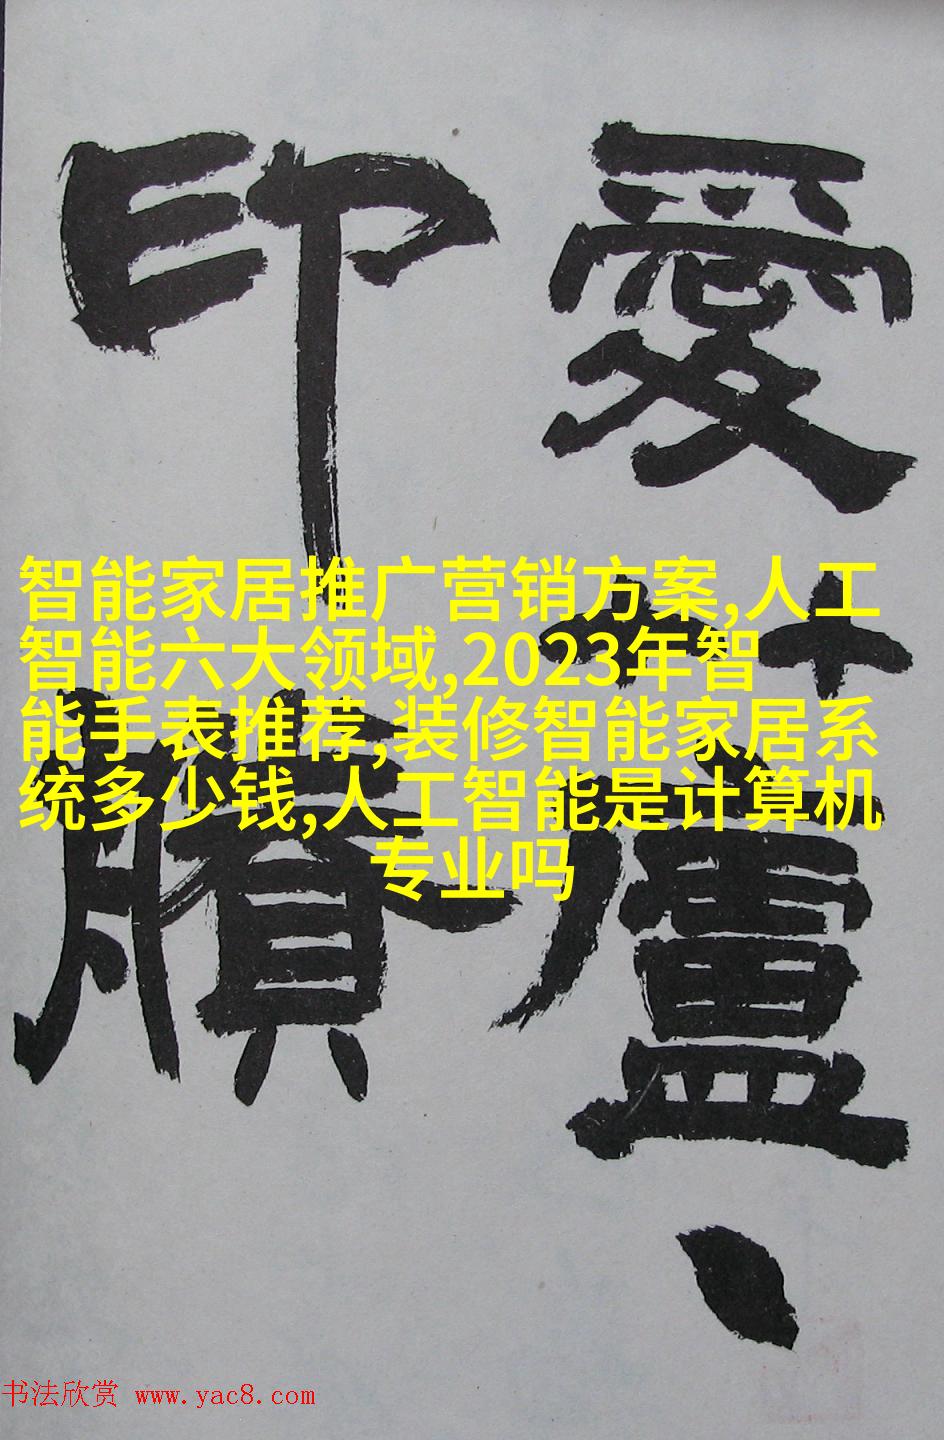 愛廬
印牘
智能家居推广营销方案,人工
智能六大领域,2023年智
能手表推荐,装修智能家居系
统多少钱,人工智能是计算机
专业吗
书法欣赏 www.yac8.com